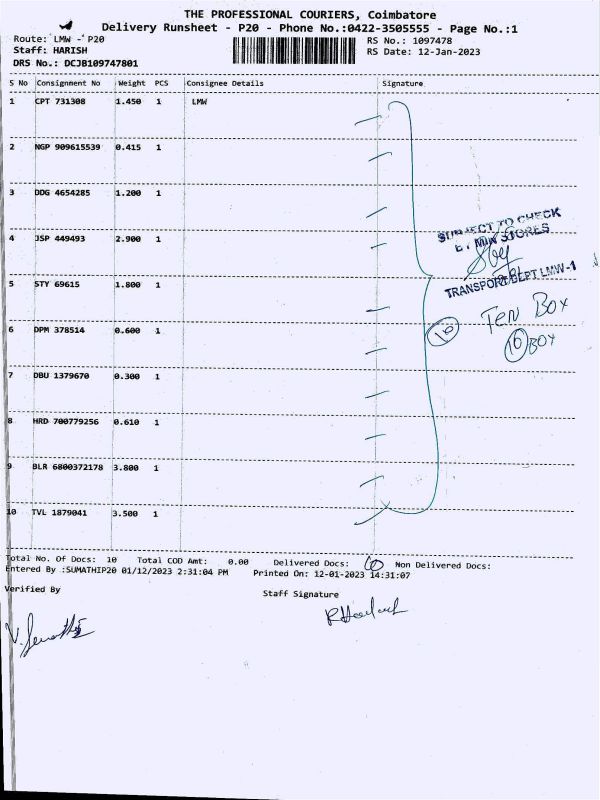 THE PROFESSIONAL COURIERS, Coimbatore
Delivery Runsheet - P20 - Phone No.:0422-3505555 - Page No.:1
Route: LMW - P20
RS No.: 1097478
Staff: HARISH
RS Date: 12-Jan-2023
DRS No.: DCJB109747801
S No Consignment No Weight PCS Consignee Details Signature
1 CPT 731308 1.450 1 LMW
2 NGP 909615539 0.415 1
3 DDG 4654285 1.200 1
SUBJECT TO CHECK
BY MIN STORES
4 JSP 449493 2.900 1
TRANSPORT DEPT LMW-1
5 STY 69615 1.800 1
Ten Box
10
6 DPM 378514 0.600 1
10 BOX
7 DBU 1379670 0.300 1
8 HRD 700779256 0.610 1
9 BLR 6800372178 3.800 1
10 TVL 1879041 3.500 1
Total No. Of Docs: 10 Total COD Amt: 0.00 Delivered Docs: 10 Non Delivered Docs:
Entered By :SUMATHIP20 01/12/2023 2:31:04 PM Printed On: 12-01-2023 14:31:07
Verified By
Staff Signature